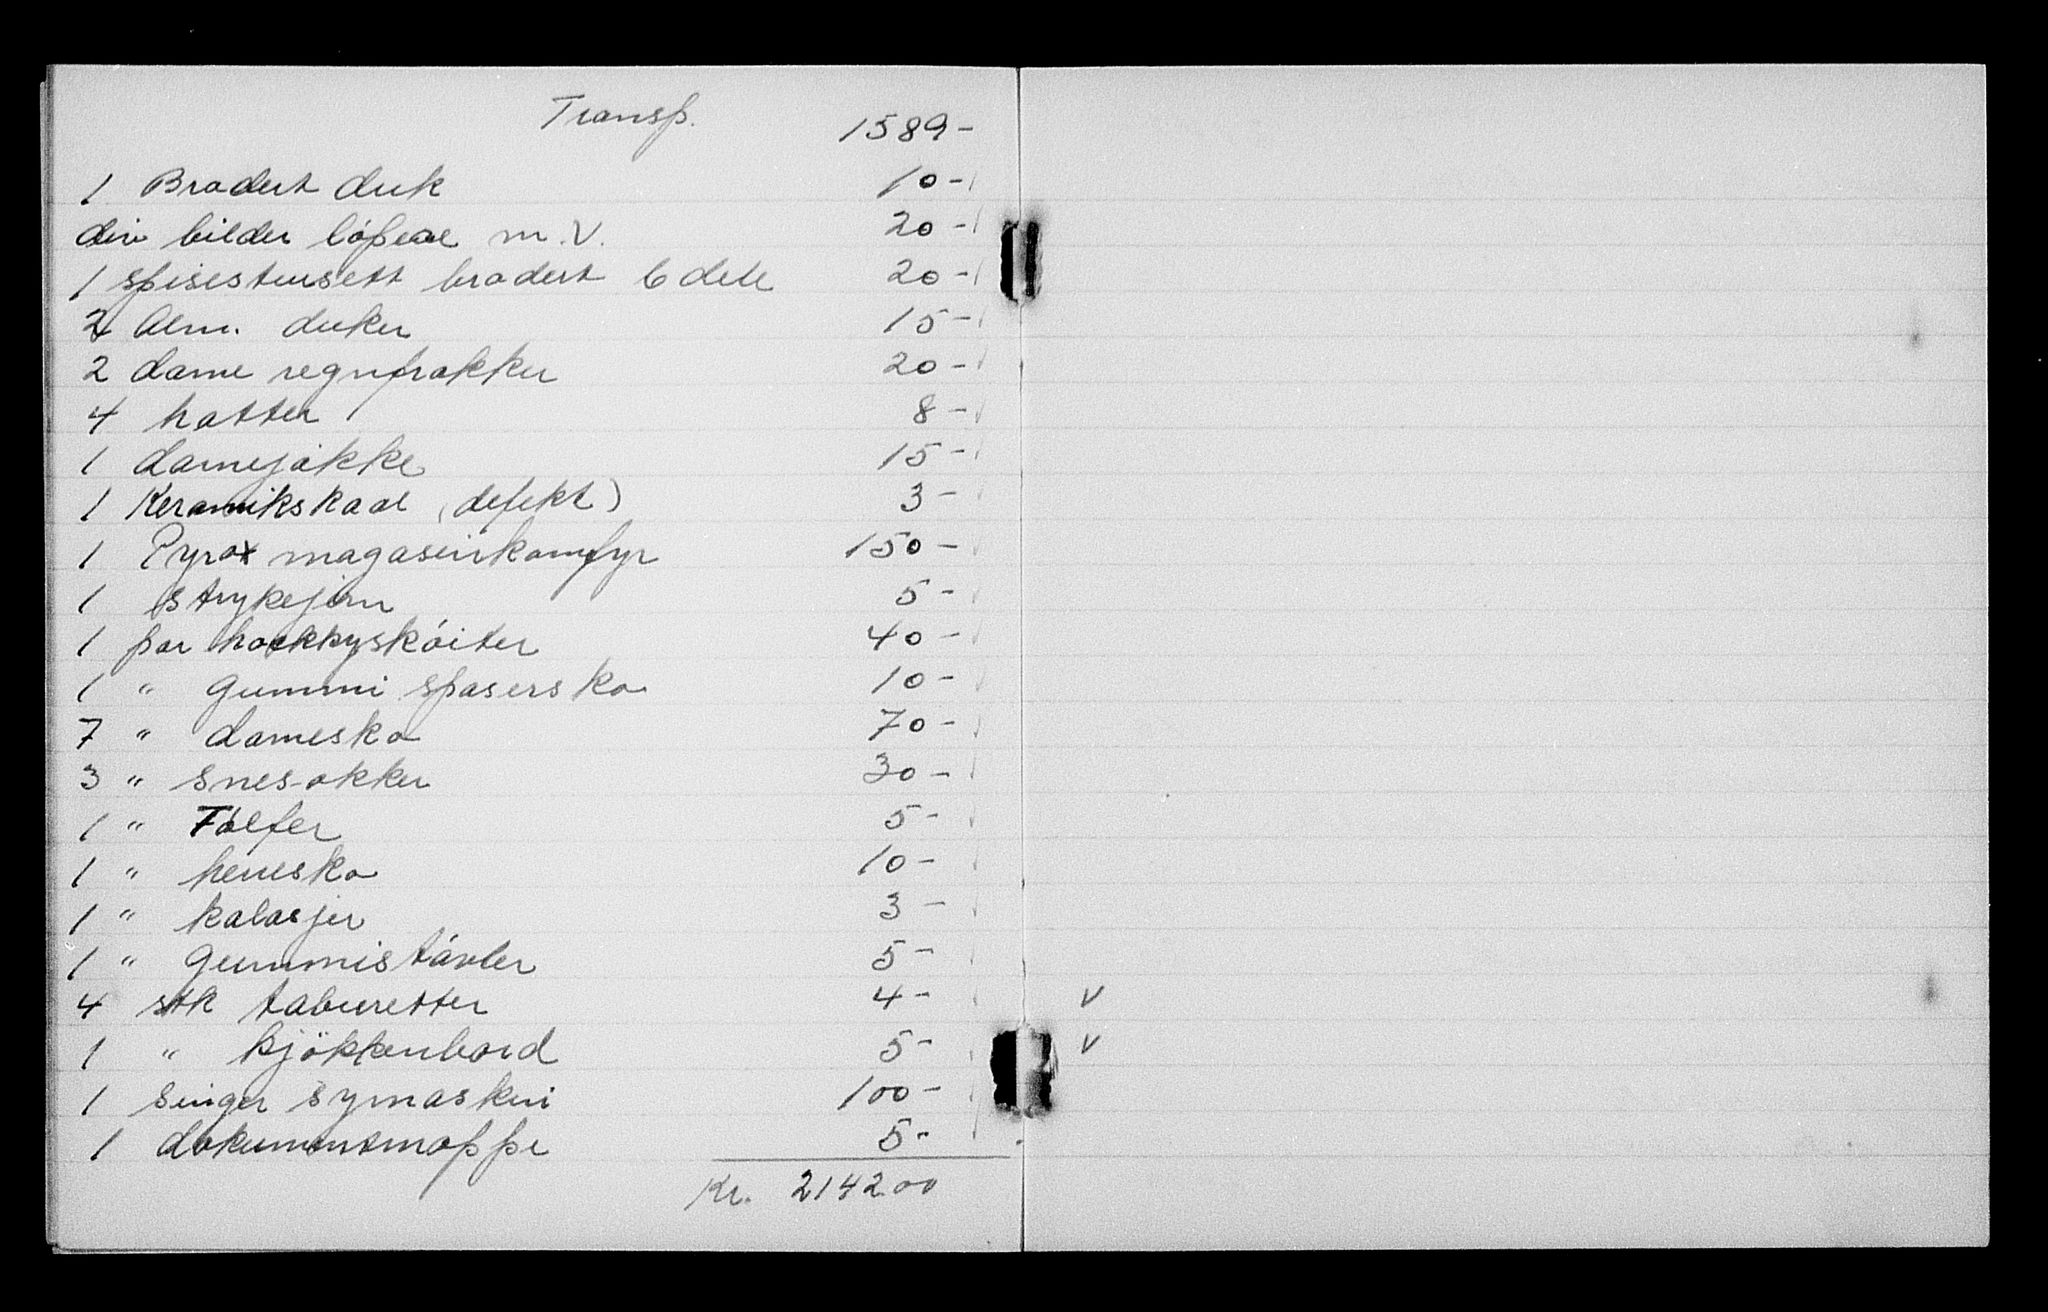 Transp. 1589-
1 Brodert duk 10-
div bilder löpere m.v. 20-
1 spisestuesett brodert 6 dele 20-
2 Alm. duker 15-
2 dame regnfrakker 20-
4 hatter 8-
1 damejakke 15-
1 Keramikskaal (defekt) 3-
1 Pyrox magasinkomfyr 150-
1 strykejern 5-
1 par hockkyskóiter 40-
1 " gummi spasersko 10-
7 " damesko 70-
3 " snesokker 30-
1 " Tófler 5-
1 " herresko 10-
1 " kalosjer 3-
1 " gummistóvler 5-
4 stk taburetter 4- V
1 " kjökkenbord 5- V
1 singer symaskin 100-
1 dokumentmappe 5-
Kr. 2142.00